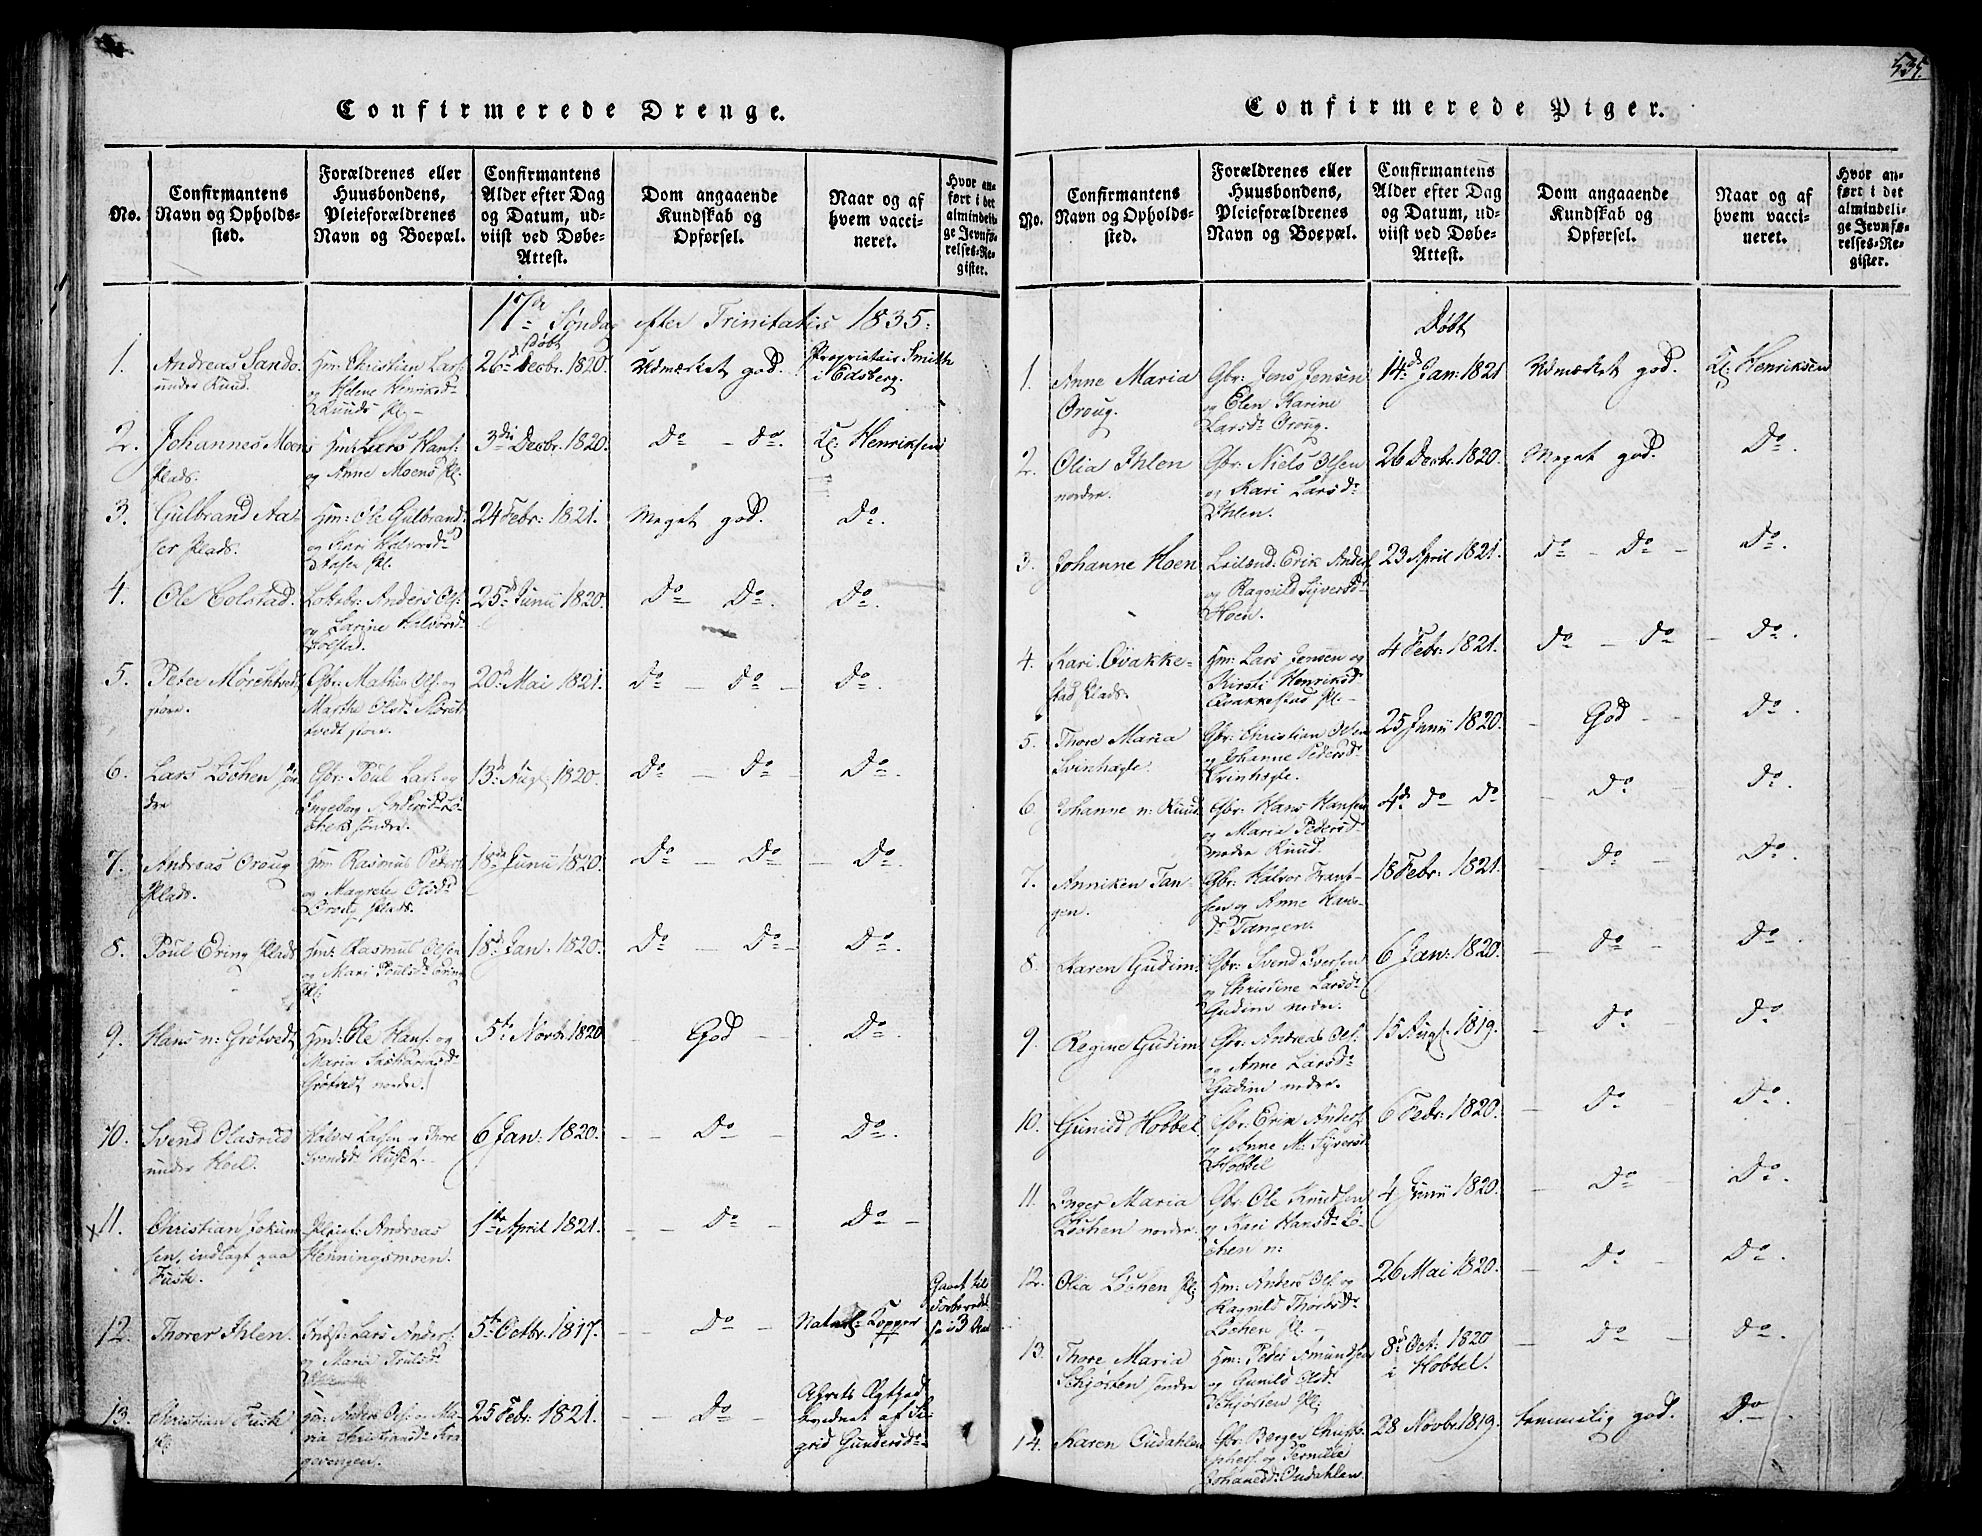 535.
Confirmerede Drenge.
No.
Confirmantens
Navn og Opholds-
sted.
Forældrenes eller
Huusbondens,
Pleieforældrenes
Navn og Boepæl.
Confirmantens
Alder efter Dag
og Datum, ud-
viist ved Døbe-
Attest.
Dom angaaende
Kundskab og
Opførsel.
Naar og af
hvem vacci-
neret.
Hvor an-
ført i det
almindeli-
ge Jevnfø-
relses-Re-
gister.
17de Søndag efter Trinitatis 1835.
døbt
1.
Andreas Sando.
under Ruud.
Hm: Christian Lars:
og Helene Henriksd:
Ruuds Pl.
26de Decbr. 1820.
Udmærket god.
Proprietair Smith
i Edsberg.
2.
Johannes Moens
Plads.
Hm: Lars Hans:
og Anne Moens Pl.
3die Decbr. 1820.
Do - Do.
Kl: Henriksen
3.
Gulbrand Aa-
ser Plads.
Hm: Ole Gulbrand
og Kari Halvorsd:
Aasen Pl.
24 Febr: 1821.
Meget god.
Do.
4.
Ole Colstad.
Anders Ols:
og Karine Halvorsd:
Colstad.
25de Junii 1820.
Do - Do.
Do.
5.
Peter Mørchtvedt
Gbr: Mathis Ols: og
Marthe Olsd: Mørch
tvedt
20de Mai 1821.
Do - Do -
Do.
6.
Lars Løchen søn
dre
Gbr: Poul Lars: og
Ingeborg Andersd: Lø
chen søndre.
13de Aug: 1820.
Do - Do -
Do.
7.
Andreas Oroug
Plads.
Hm: Rasmus Peders:
og Magrete Olsd:
Oroug Plads.
18de Junii 1820.
Do - Do -
Do.
8.
Poul Ering Plads
Hm: Rasmus Olsen
og Mari Poulsd: Ering
Pl:
18de Jan. 1820.
Do - Do -
Do.
9.
Hans n: Grøtvedt
Hm: Ole Hans: og
Maria Sachariasd:
Grøtvedt nordre.
5te Novbr 1820
God -
Do.
10.
Svend Olasrud
under Hoel.
Halvor Lassen og Thore
Svendsd: Huset.
6 Jan: 1820.
Do -
Do.
x 11.
Christian Jokum
sen, indlagt paa
Fusk.
Pleief: Andreas
Henningsmoen.
1ste April 1821.
Do -
Do -
12.
Thorer Ihlen.
Inds: Lars Anders:
og Maria Trulsd:
5te Octbr. 1817.
Do -
Naturl: Kopper
Gaaet til
Forberedel
se i 3 Aar
13.
Christian Fusk
Pl:
Hm: Anders Ols: og Ma-
ria Christiansd:
gerengen.
25 Febr. 1821.
Do -
Attest
af Si-
grid Gundersd:
Confirmerede Piger.
No.
Confirmantens
Navn og Opholds-
sted.
Forældrenes eller
Huusbondens,
Pleieforældrenes
Navn og Boepæl.
Confirmantens
Alder efter Dag
og Datum, ud-
viist ved Døbe-
Attest.
Dom angaaende
Kundskab og
Opførsel.
Naar og af
hvem vacci-
neret.
Hvor an-
ført i det
almindeli-
ge Jevnfø-
relses-Re-
gister.
Døbt
1.
Anne Maria
Oroug.
Gbr: Jens Jensen
og Elen Karine
Larsd: Oroug.
14de Jan: 1821
Udmærket god.
Kl: Henriksen
2.
Olia Ihlen
nordre.
Gbr: Niels Olsen
og Kari Larsd:
Ihlen.
26 Decbr. 1820.
Meget god.
Do.
3.
Johanne Hoen
Leilænd: Erik Anders
og Ragnild Syversd:
Hoen.
23 April 1821.
Do - Do -
Do.
4.
Kari Qvakke-
stad Plads.
Hm: Lars Jensen og
Kirsti Henriksd:
Qvakkestad Pl.
4 Febr: 1821.
Do - Do
- Do.
5.
Thore Maria
Svinhagle.
Gbr: Christian Olsen
og Johanne Pedersd:
Svinhagle.
25 Junii 1820.
- God -
Do.
6.
Johanne n: Ruud
Gbr: Hans Hansen
og Maria Pedersd:
nedre Ruud.
4de Do Do
- Do -
Do.
7.
Anniken Tan-
gen.
Gbr: Halvor Frant-
sen og Anne Hans
dr Tangen.
18 Febr: 1821.
- Do -
Do.
8.
Karen Gudim.
Gbr: Svend Iversen
og Christine Larsd:
Gudim nedre.
6 Jan: 1820.
- Do -
Do.
9.
Regine Gudim.
Gbr: Andreas Ols:
og Anne Larsd:
Gudim nedre.
15 Aug: 1819.
- Do -
Do
10.
Gunild Hobbel.
Gbr: Erik Anders:
og Anne M: Syversd
Hobbel
6 Febr: 1820.
- Do -
Do.
11.
Inger Maria
Løchen nordre.
Gbr: Ole Knudsen
og Kari Hansd: Lø-
chen n:
4 Junii 1820.
- Do -
Do.
12.
Olia Løchen Pl:
Hm: Anders Ols: og
Ragnild Thorsdr
Løchen Pl.
26 Mai 1820.
- Do -
Do.
13.
Thore Maria
Schjørten søndre
Hm: Peder Amundsen
og Gunild Olsd:
Schjørten Pl:
8de Oct: 1820
i Hobbel.
- Do -
Do.
14.
Karen Oudahlen
Gbr: Berger Christo
phers: og Pernille
Johansd: Oudahlen
28 Novbr 1819.
temmelig god.
Do.